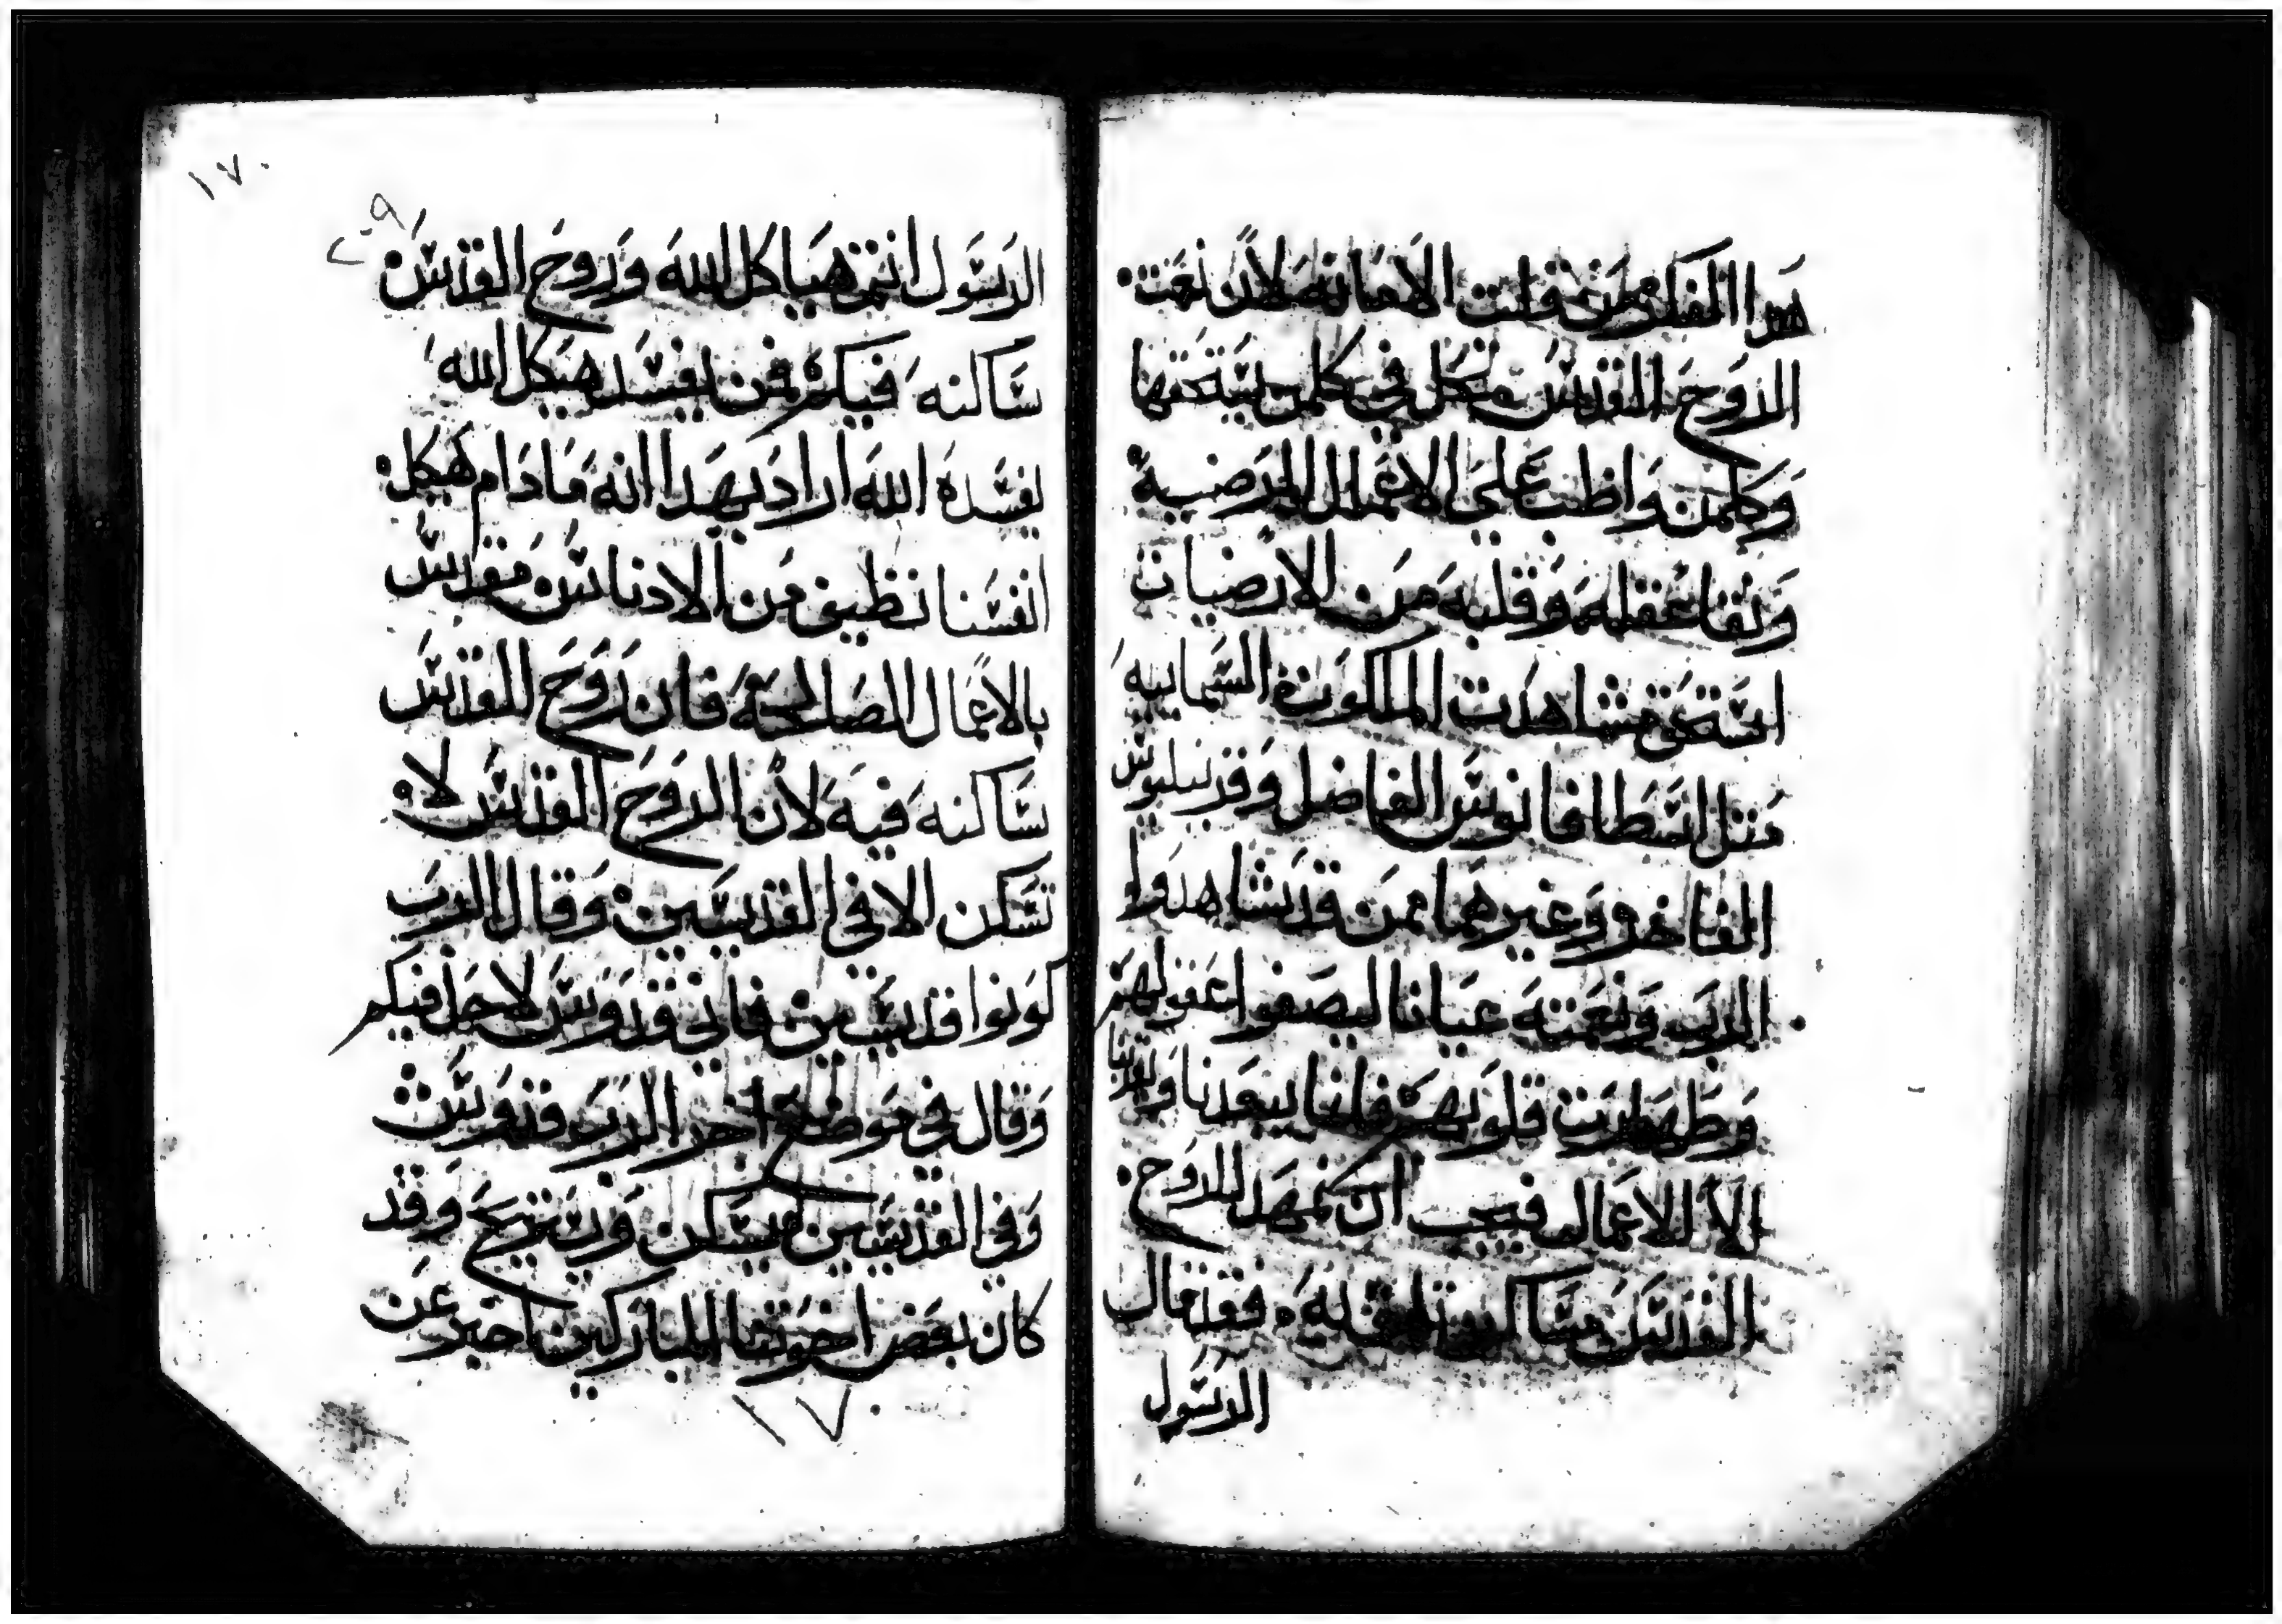 هدا الفكر وقلت الامانه لان نعت
الروح القدس تحل في كلمن يستحقها
وكلمن واظب علي الاعمال المرضية
ونقا عقله وقلبه من الارضيات
استحق مشاهدت الملكوت السماييه
متل اسطافانوس الفاضل وقرنيليوس
الفاخر وغيرهما ممن قد شاهدوا
الرب ونعمته عيانا ليصفوا عقولهم
وطهارت قلوبهم فلنا يبعدنا ويقربنا
الا الاعمال فيجب ان نمهد للروح
القدس مساكن فقد قال
الرسول
١٧٠
٢٠٩
الرسول انتم هياكل الله وروح القدس
ساكنه فيكم فمن يفسد هيكل الله
يفسده الله اراد بهدا انه ما دام هيكل
انفسنا نظيف من الادناس مقدس
بالاعمال الصالحة فان روح القدس
ساكنه فيه لان الروح القدس لا
تسكن الا في القديسين وقال الرب
كونوا قديسين فاني قدوس لاحل فيكم
وقال في موضع اخر الرب قدوس
وفي القديسين يسكن ويستريح وقد
كان بعض اخوتنا المباركين اخبر عن
١٧٠